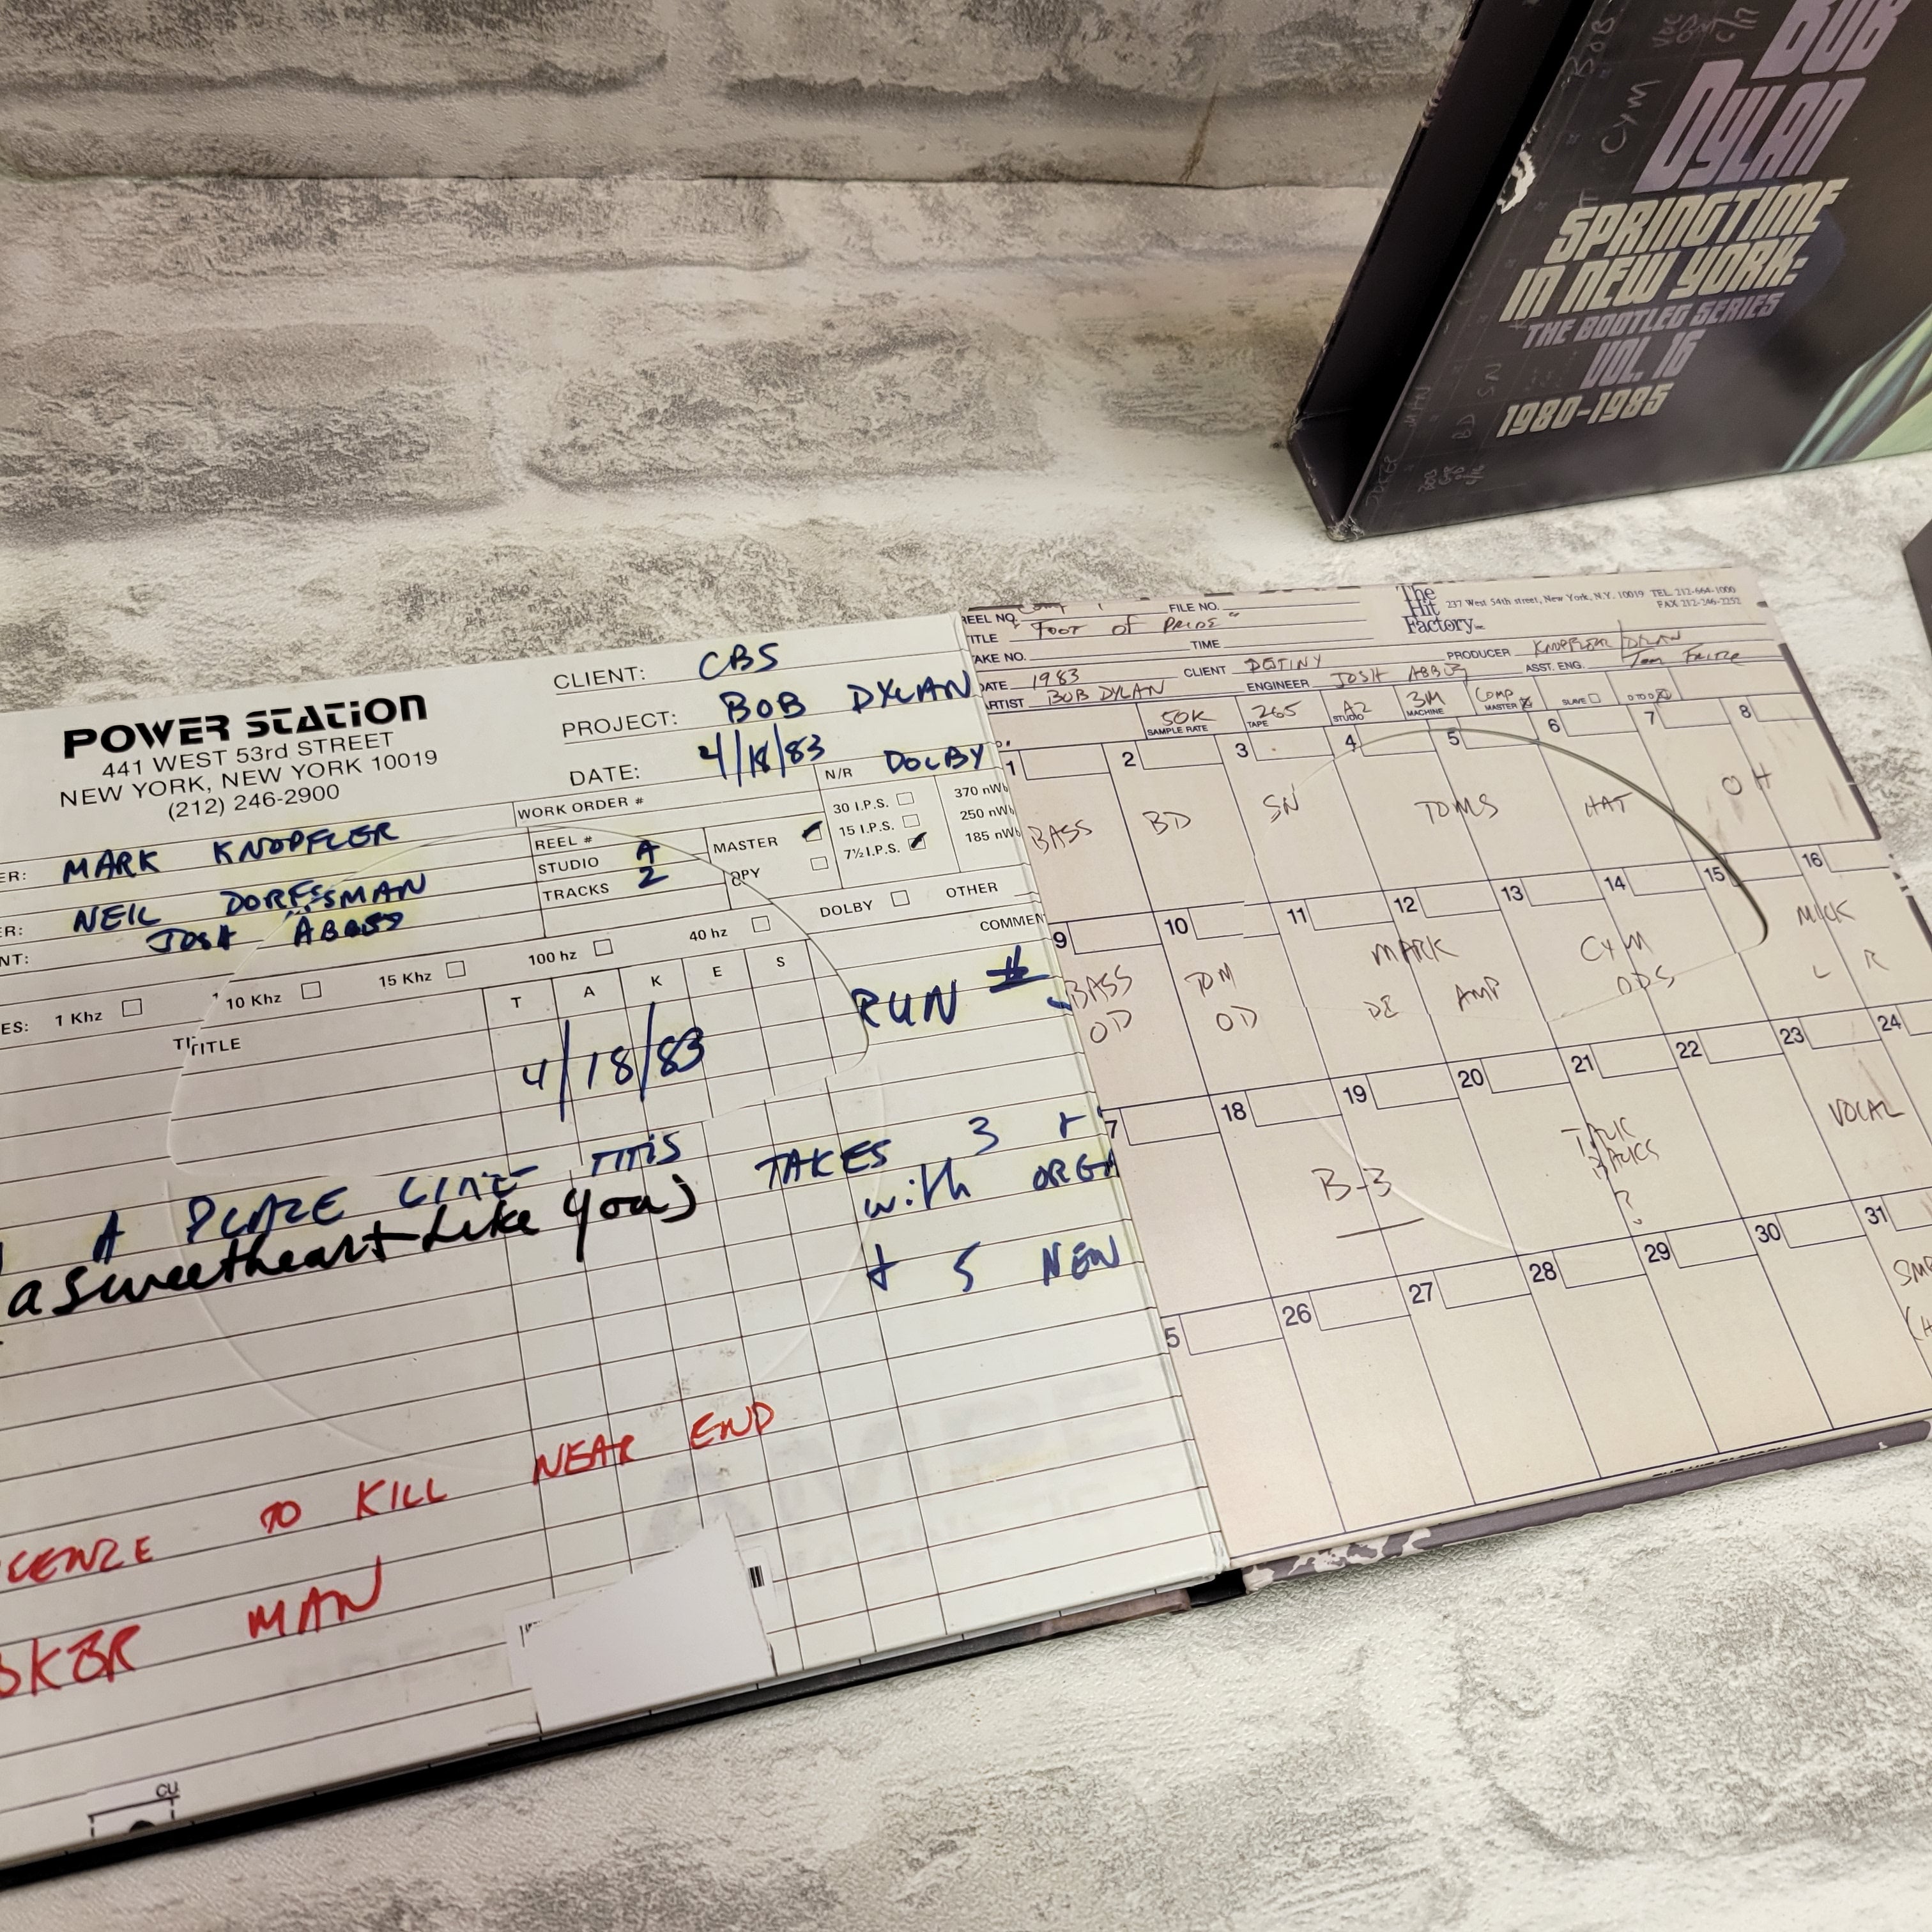 BOB
DYLAN
SPRINGTIME
IN NEW YORK:
THE BOOTLEG SERIES
VOL. 16
1980-1985
POWER STATION
441 WEST 53rd STREET
NEW YORK, NEW YORK 10019
(212) 246-2900
CLIENT: CBS
PROJECT: BOB DYLAN
DATE: 4/18/83
N/R DOLBY
ER: MARK KNOPFLER
ER: NEIL DORFSMAN
NT: JOSH ABBEY
WORK ORDER #
REEL #
STUDIO A
TRACKS 2
MASTER
OPY
30 I.P.S.
15 I.P.S.
7½ I.P.S.
370 nWb
250 nWb
185 nWb
DOLBY OTHER
COMMEN
ES: 1 Khz 10 Khz 15 Khz 100 hz 40 hz
TITLE
T A K E S
RUN
4/18/83
A PLACE LIKE THIS TAKES 3 +
a sweetheart Like You) with ORGA
+ 5 NEW
CENZE TO KILL NEAR END
OKER MAN
CU
REEL NO. FILE NO.
TITLE "FOOT of PRIDE"
AKE NO. TIME
DATE 1983 CLIENT DESTINY PRODUCER KNOPFLER/DYLAN
ARTIST BOB DYLAN ENGINEER JOSH ABBEY ASST. ENG. Tom
The
Hit
Factory
237 West 54th street, New York, N.Y. 10019 TEL. 212-664-1000
FAX 212-246-2252
50K 265 A2 3M COMP
SAMPLE RATE TAPE STUDIO MACHINE MASTER SLAVE
1 2 3 4 5 6 7 8
BASS BD SN TOMS HAT OH
9 10 11 12 13 14 15 16
BASS OD TOM OD MARK DI AMP CYM ODS MICK L R
7 18 19 20 21 22 23 24
B-3 TALK BACKS ? VOCAL
5 26 27 28 29 30 31